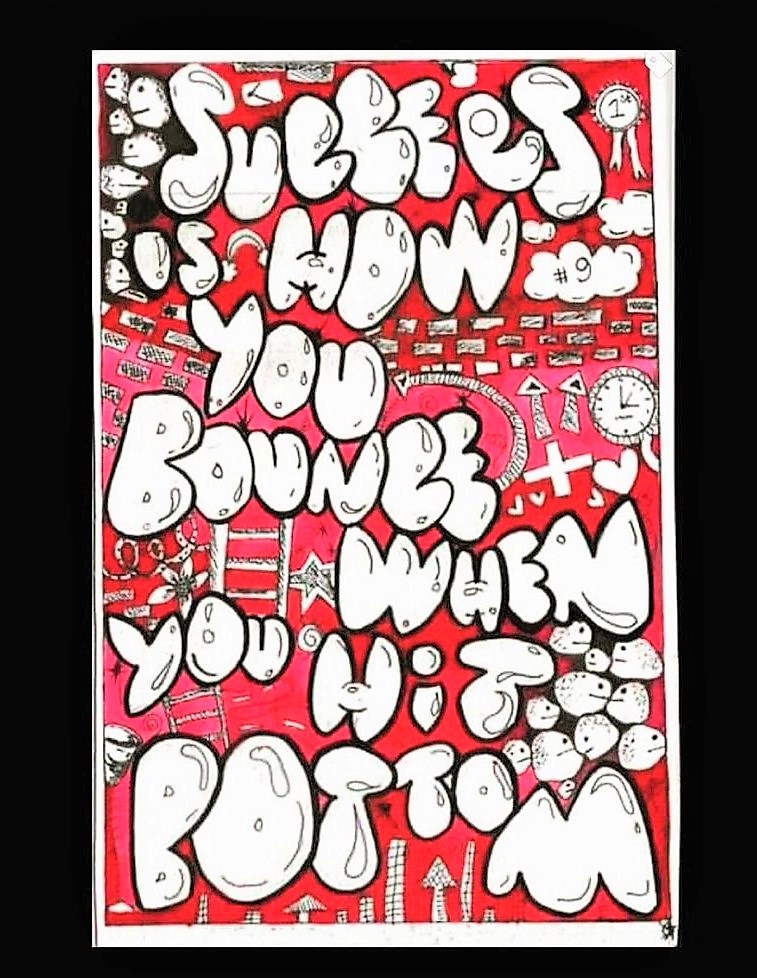 SUCCESS
1st
iS HOW
#9
YOU
BOUNCE
WHEN
YOU HiT
BOTTOM